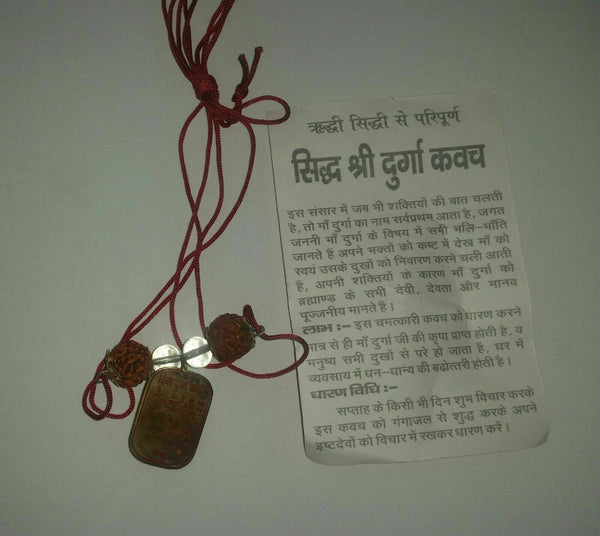 ऋद्धी सिद्धी से परिपूर्ण
सिद्ध श्री दुर्गा कवच
इस संसार में जब भी शक्तियों की बात चलती
है, तो माँ दुर्गा का नाम सर्वप्रथम आता है, जगत
जननी माँ दुर्गा के विषय में सभी भलि-भाँति
जानते हैं अपने भक्तो को कष्ट में देख माँ को
स्वयं उसके दुखों को निवारण करने चली आती
हैं, अपनी शक्तियों के कारण माँ दुर्गा को
ब्रह्माण्ड के सभी देवी, देवता और मानव
पूज्जनीय मानते हैं।
लाभ :- इस चमत्कारी कवच को धारण करने
मात्र से ही माँ दुर्गा जी की कृपा प्राप्त होती है, व
मनुष्य सभी दुखों से परे हो जाता है, घर में
व्यवसाय में धन-धान्य की बढोत्तरी होती है।
धारण विधि :-
सप्ताह के किसी भी दिन शुभ विचार करके
इस कवच को गंगाजल से शुद्ध करके अपने
इष्टदेवों को विचार में रखकर धारण करें।